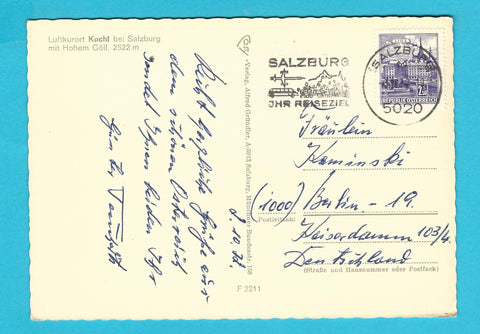 Luftkurort Kuchl bei Salzburg
mit Hohem Göll, 2522 m
2. 10. 72.
Recht herzliche Grüße aus
dem schönen Österreich
sendet Ihnen beiden Ihr
Günter
Cosy-Verlag, Alfred Gründler, A-5013 Salzburg, Münchner Bundesstr. 156
F 2211
SALZBURG
IHR REISEZIEL
SALZBURG
5020
REPUBLIK ÖSTERREICH
Fräulein
Kaminski
(1000) Berlin - 19.
(Postleitzahl)
Kaiserdamm 103/4.
Deutschland
(Straße und Hausnummer oder Postfach)